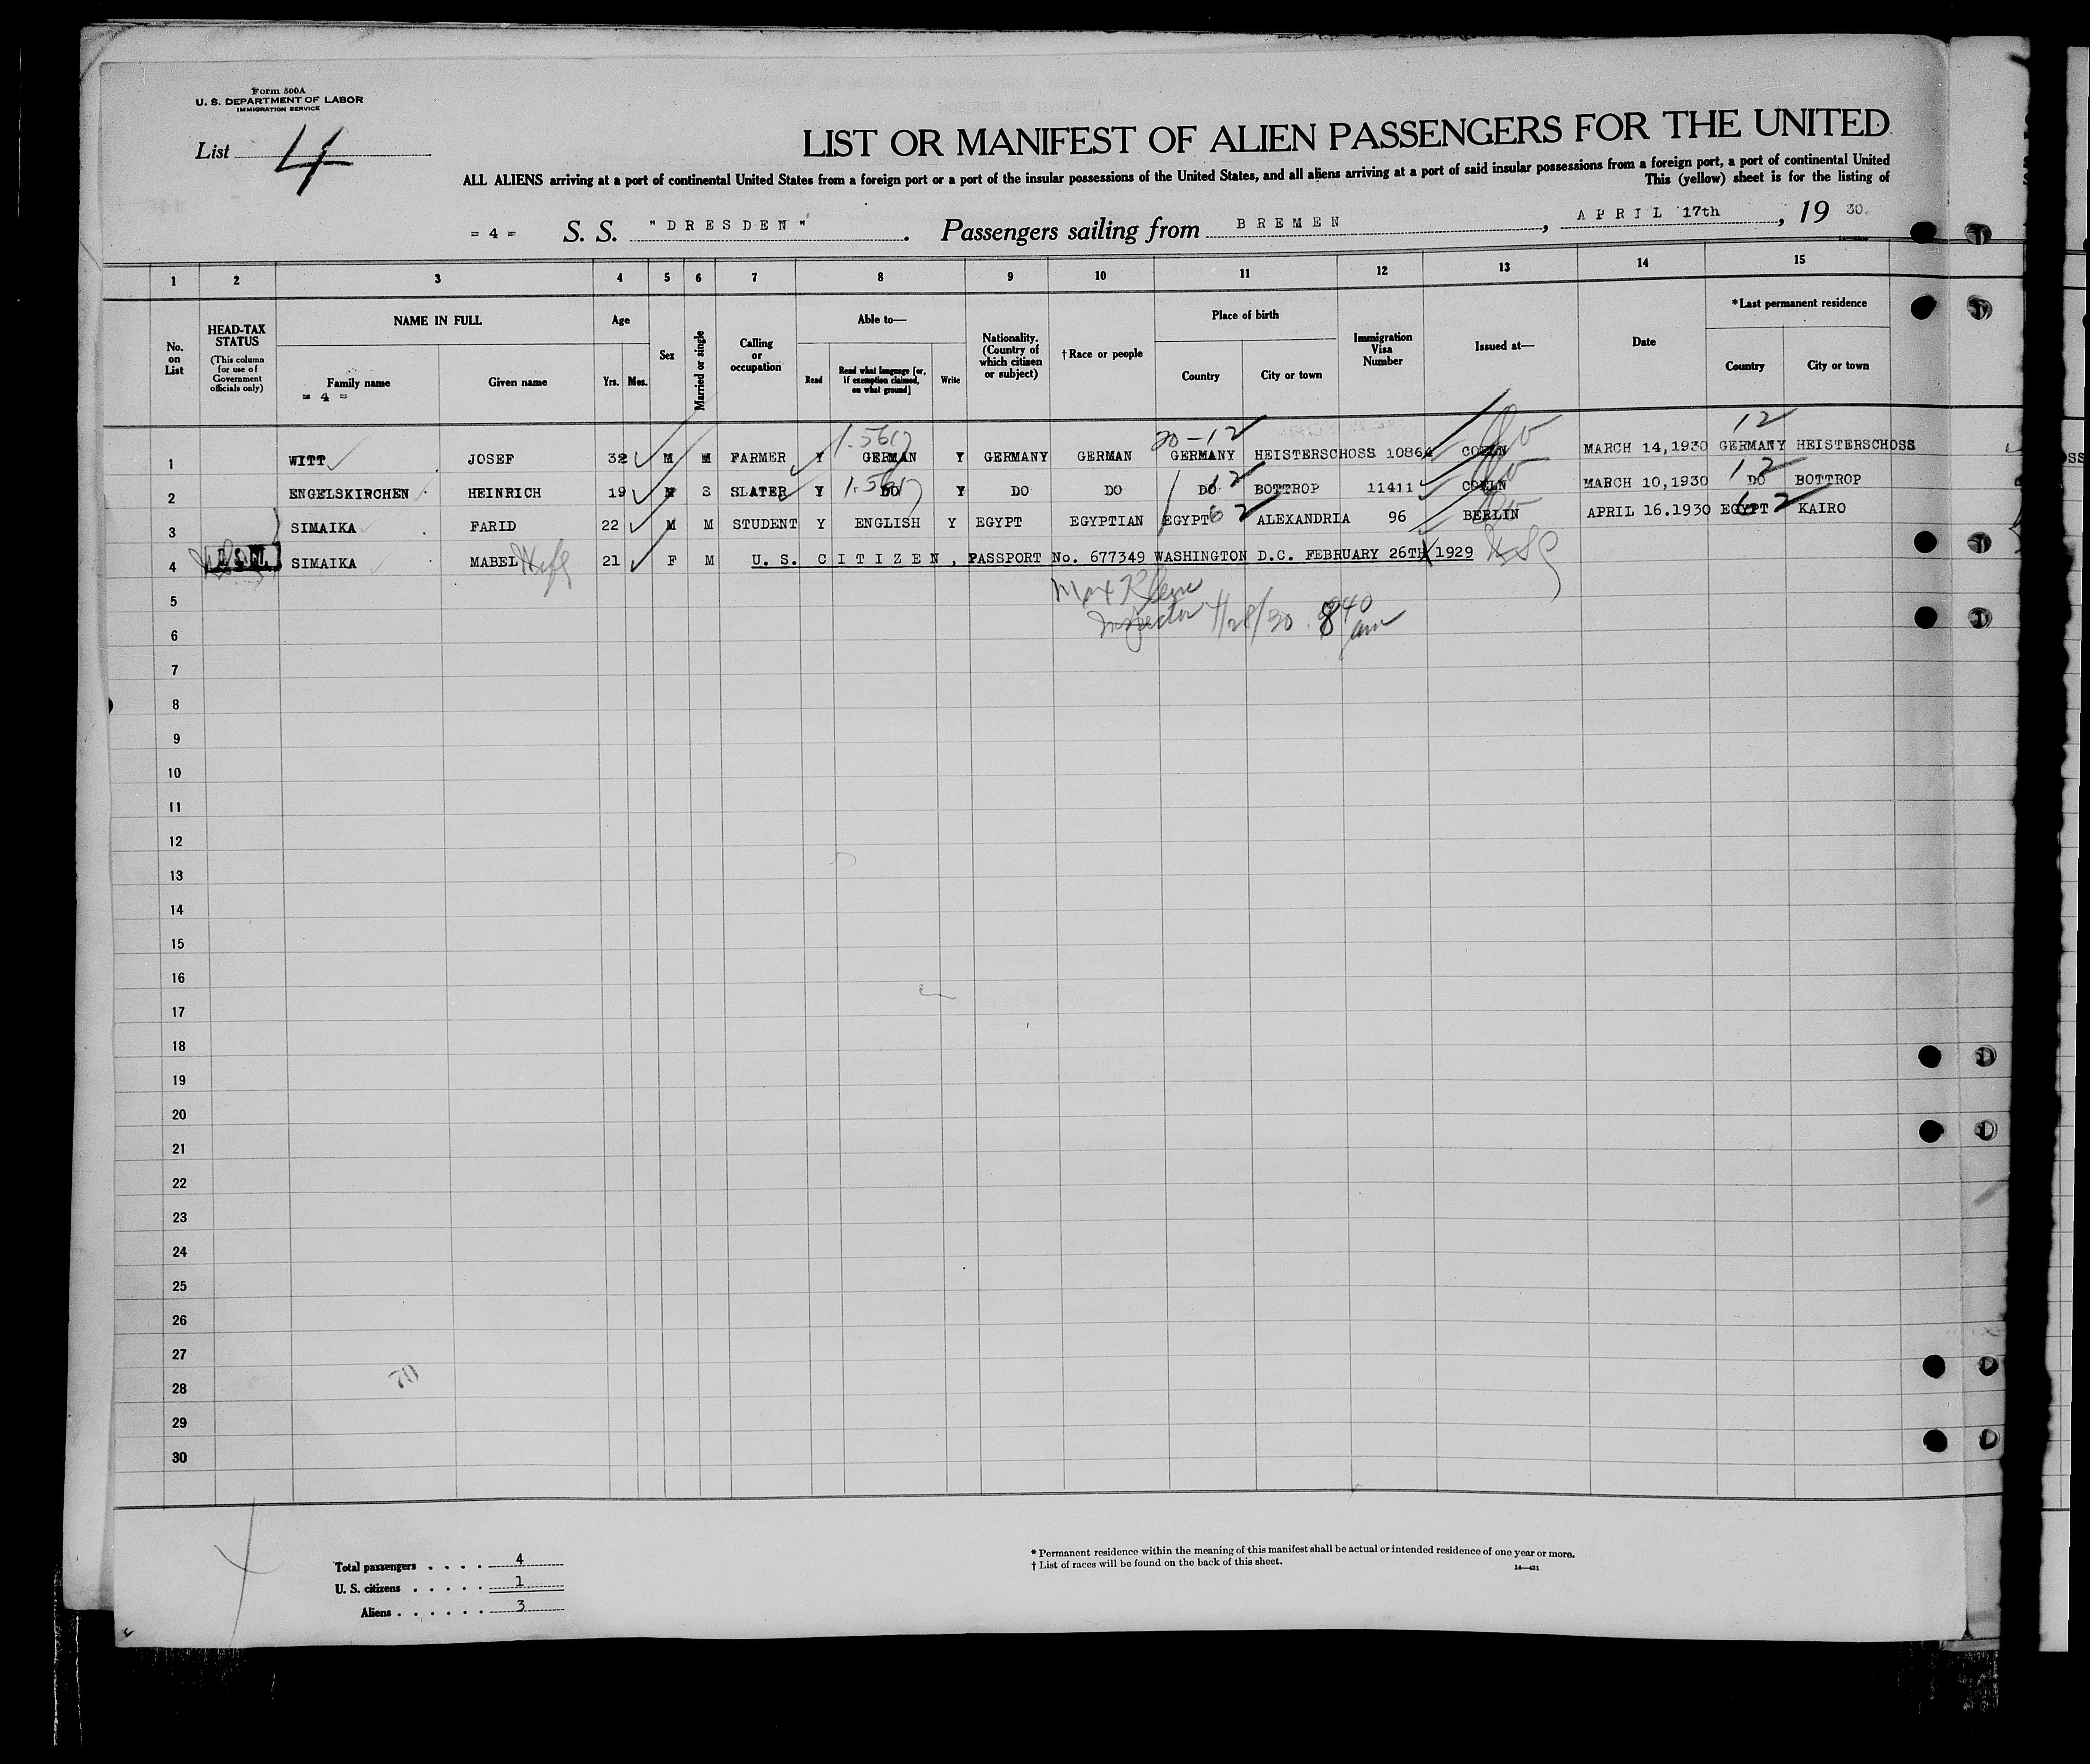 Form 500A
U. S. DEPARTMENT OF LABOR
IMMIGRATION SERVICE
List 4
LIST OR MANIFEST OF ALIEN PASSENGERS FOR THE UNITED
ALL ALIENS arriving at a port of continental United States from a foreign port or a port of the insular possessions of the United States, and all aliens arriving at a port of said insular possessions from a foreign port, a port of continental United
This (yellow) sheet is for the listing of
= 4 = S. S. "DRESDEN". Passengers sailing from BREMEN, APRIL 17th, 19 30.
1 2 3 4 5 6 7 8 9 10 11 12 13 14 15
No. on List
HEAD-TAX STATUS
(This column for use of Government officials only)
NAME IN FULL
Family name
= 4 =
Given name
Age
Yrs. Mos.
Sex
Married or single
Calling or occupation
Able to—
Read
Read what language [or, if exemption claimed, on what ground]
Write
Nationality. (Country of which citizen or subject)
† Race or people
Place of birth
Country
City or town
Immigration Visa Number
Issued at—
Date
*Last permanent residence
Country
City or town
20-12 12
1 WITT JOSEF 32 M M FARMER Y GERMAN Y GERMANY GERMAN GERMANY HEISTERSCHOSS 10864 COELN MARCH 14,1930 GERMANY HEISTERSCHOSS
12 12
2 ENGELSKIRCHEN HEINRICH 19 M S SLATER Y DO Y DO DO DO BOTTROP 11411 COELN MARCH 10,1930 DO BOTTROP
3 SIMAIKA FARID 22 M M STUDENT Y ENGLISH Y EGYPT EGYPTIAN EGYPT ALEXANDRIA 96 BERLIN APRIL 16.1930 EGYPT KAIRO
4 SIMAIKA MABEL Wife 21 F M U. S. CITIZEN, PASSPORT No. 677349 WASHINGTON D.C. FEBRUARY 26TH 1929
5 Max Klein
6 Inspector 4/28/30 8 40 am
7
8
9
10
11
12
13
14
15
16
17
18
19
20
21
22
23
24
25
26
27
28
29
30
70
Total passengers . . . . 4
U. S. citizens . . . . . 1
Aliens . . . . . . 3
* Permanent residence within the meaning of this manifest shall be actual or intended residence of one year or more.
† List of races will be found on the back of this sheet.
14—431